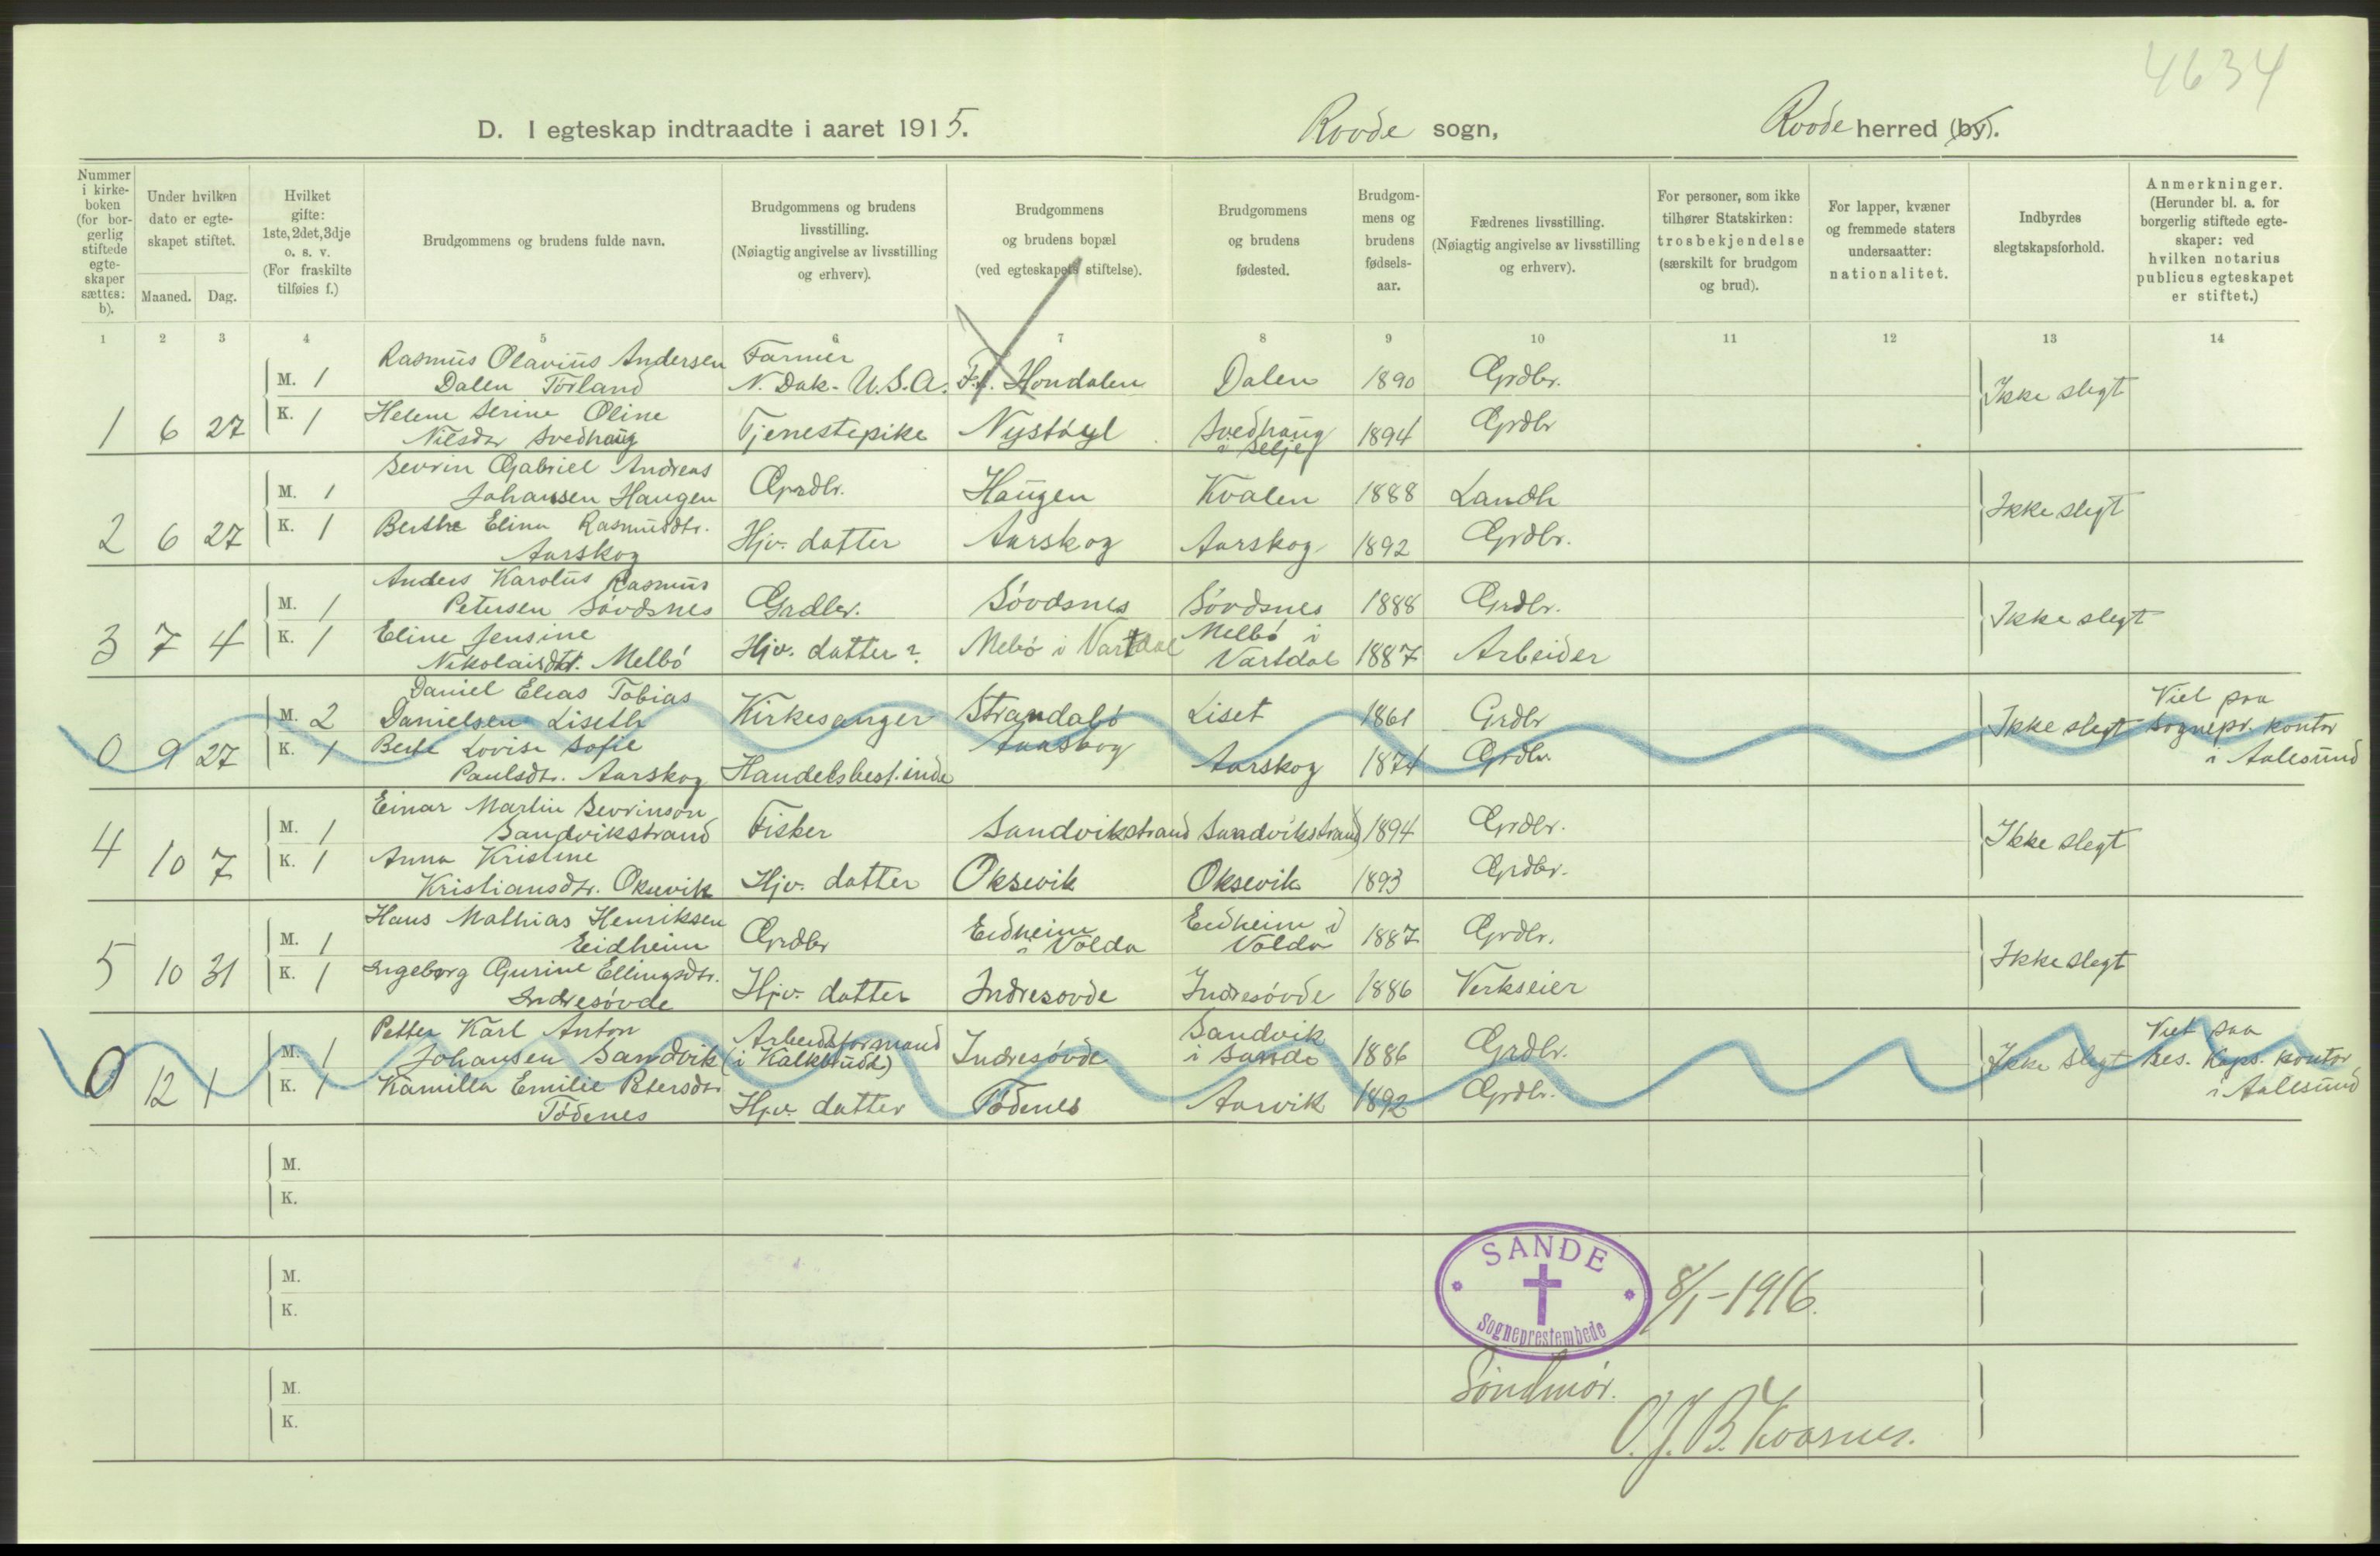 4634
D. I egteskap indtraadte i aaret 1915. Rovde sogn, Rovde herred (by).
Nummer i kirke-boken (for bor-gerlig stiftede egte-skaper sættes: b).
Under hvilken dato er egte-skapet stiftet.
Maaned. Dag.
Hvilket gifte: 1ste, 2det, 3dje o. s. v. (For fraskilte tilføies f.)
Brudgommens og brudens fulde navn.
Brudgommens og brudens livsstilling. (Nøiagtig angivelse av livsstilling og erhverv).
Brudgommens og brudens bopæl (ved egteskapets stiftelse).
Brudgommens og brudens fødested.
Brudgom-mens og brudens fødsels-aar.
Fædrenes livsstilling. (Nøiagtig angivelse av livsstilling og erhverv).
For personer, som ikke tilhører Statskirken: trosbekjendelse (særskilt for brudgom og brud).
For lapper, kvæner og fremmede staters undersaatter: nationalitet.
Indbyrdes slegtskapsforhold.
Anmerkninger. (Herunder bl. a. for borgerlig stiftede egte-skaper: ved hvilken notarius publicus egteskapet er stiftet.)
1 2 3 4 5 6 7 8 9 10 11 12 13 14
Rasmus Olavius Andersen Farmer
M. 1 Dalen Törland N. Dak. U.S.A. Hondalen Dalen 1890 Grdbr. Ikke slegt
K. 1 Helene Serine Oline
1 6 27 Nilsdr Svedhaug Tjenestepike Nystöyl Svedhaug i Selje 1894 Grdbr
Sevrin Gabriel Andreas
M. 1 Johansen Haugen Grdbr. Haugen Kvalen 1888 Landh Ikke slegt
K. 1 Berthe Elina Rasmusdtr.
2 6 27 Aarskog Hjv. datter Aarskog Aarskog 1892 Grdbr.
Anders Karolus Rasmus
M. 1 Petersen Sóvdsnes Gardbr. Sóvdsnes Sóvdsnes 1888 Grdbr. Ikke slegt
K. 1 Eline Jensine
3 7 4 Nikolaisdtr. Melbó Hjv. datter? Mebó i Vartdal Melbó i Vartdal 1887 Arbeider
Daniel Elias Tobias
M. 2 Danielsen Liseth Kirkesanger Strandabó Liset 1861 Grdbr Ikke slegt
Viet paa
Sognepr. kontor
i Aalesund
K. 1 Berte Lovise Sofie
0 9 27 Paulsdtr. Aarskog Handelsbest.inde Aarskog Aarskog 1874 Grdbr.
Einar Martin Sevrinson
M. 1 Sandvikstrand Fisker Sandvikstrand Sandvikstrand 1894 Grdbr. Ikke slegt
K. 1 Anna Kristine
4 10 7 Kristiansdtr. Oksevik Hjv. datter Oksevik Oksevik 1893 Grdbr.
Hans Mathias Henriksen
M. 1 Eidheim Grdbr Eidheim i Volda Eidheim i Volda 1887 Grdbr. Ikke slegt
K. 1 Ingeborg Gurine Ellingsdtr.
5 10 31 Indresóvde Hjv. datter Indresovde Indresóvde 1886 Verkseier
Petter Karl Anton Arbeidsformand
M. 1 Johansen Sandvik (i Kalkbrudd) Indresóvde Sandvik i Sande 1886 Grdbr. Ikke slegt
Viet paa
Res. Kaps. kontor
i Aalesund
K. 1 Kamilla Emilie Petersdtr
0 12 1 Tödenes Hjv. datter Tödenes Aarvik 1892 Grdbr.
M.
K.
M.
K.
M.
K.
SANDE
Sogneprestembede
8/1-1916.
Söndmör.
O. J. B. Kvasnes.